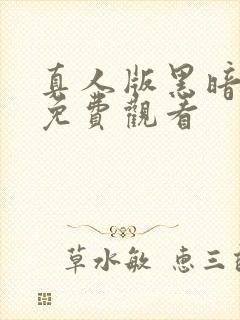 真人版黑暗
免費觀看
草水敏 惠三